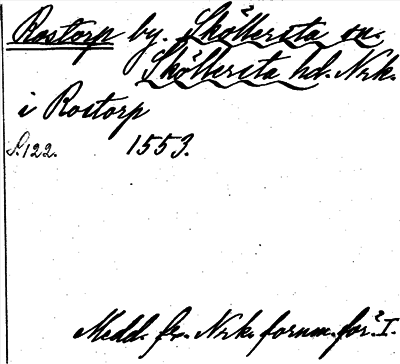 Rostorp by. Sköllersta sn.
Sköllersta hd. Nrk.
i Rostorp
S. 122. 1553.
Medd. fr. Nrk. fornm. för. I.